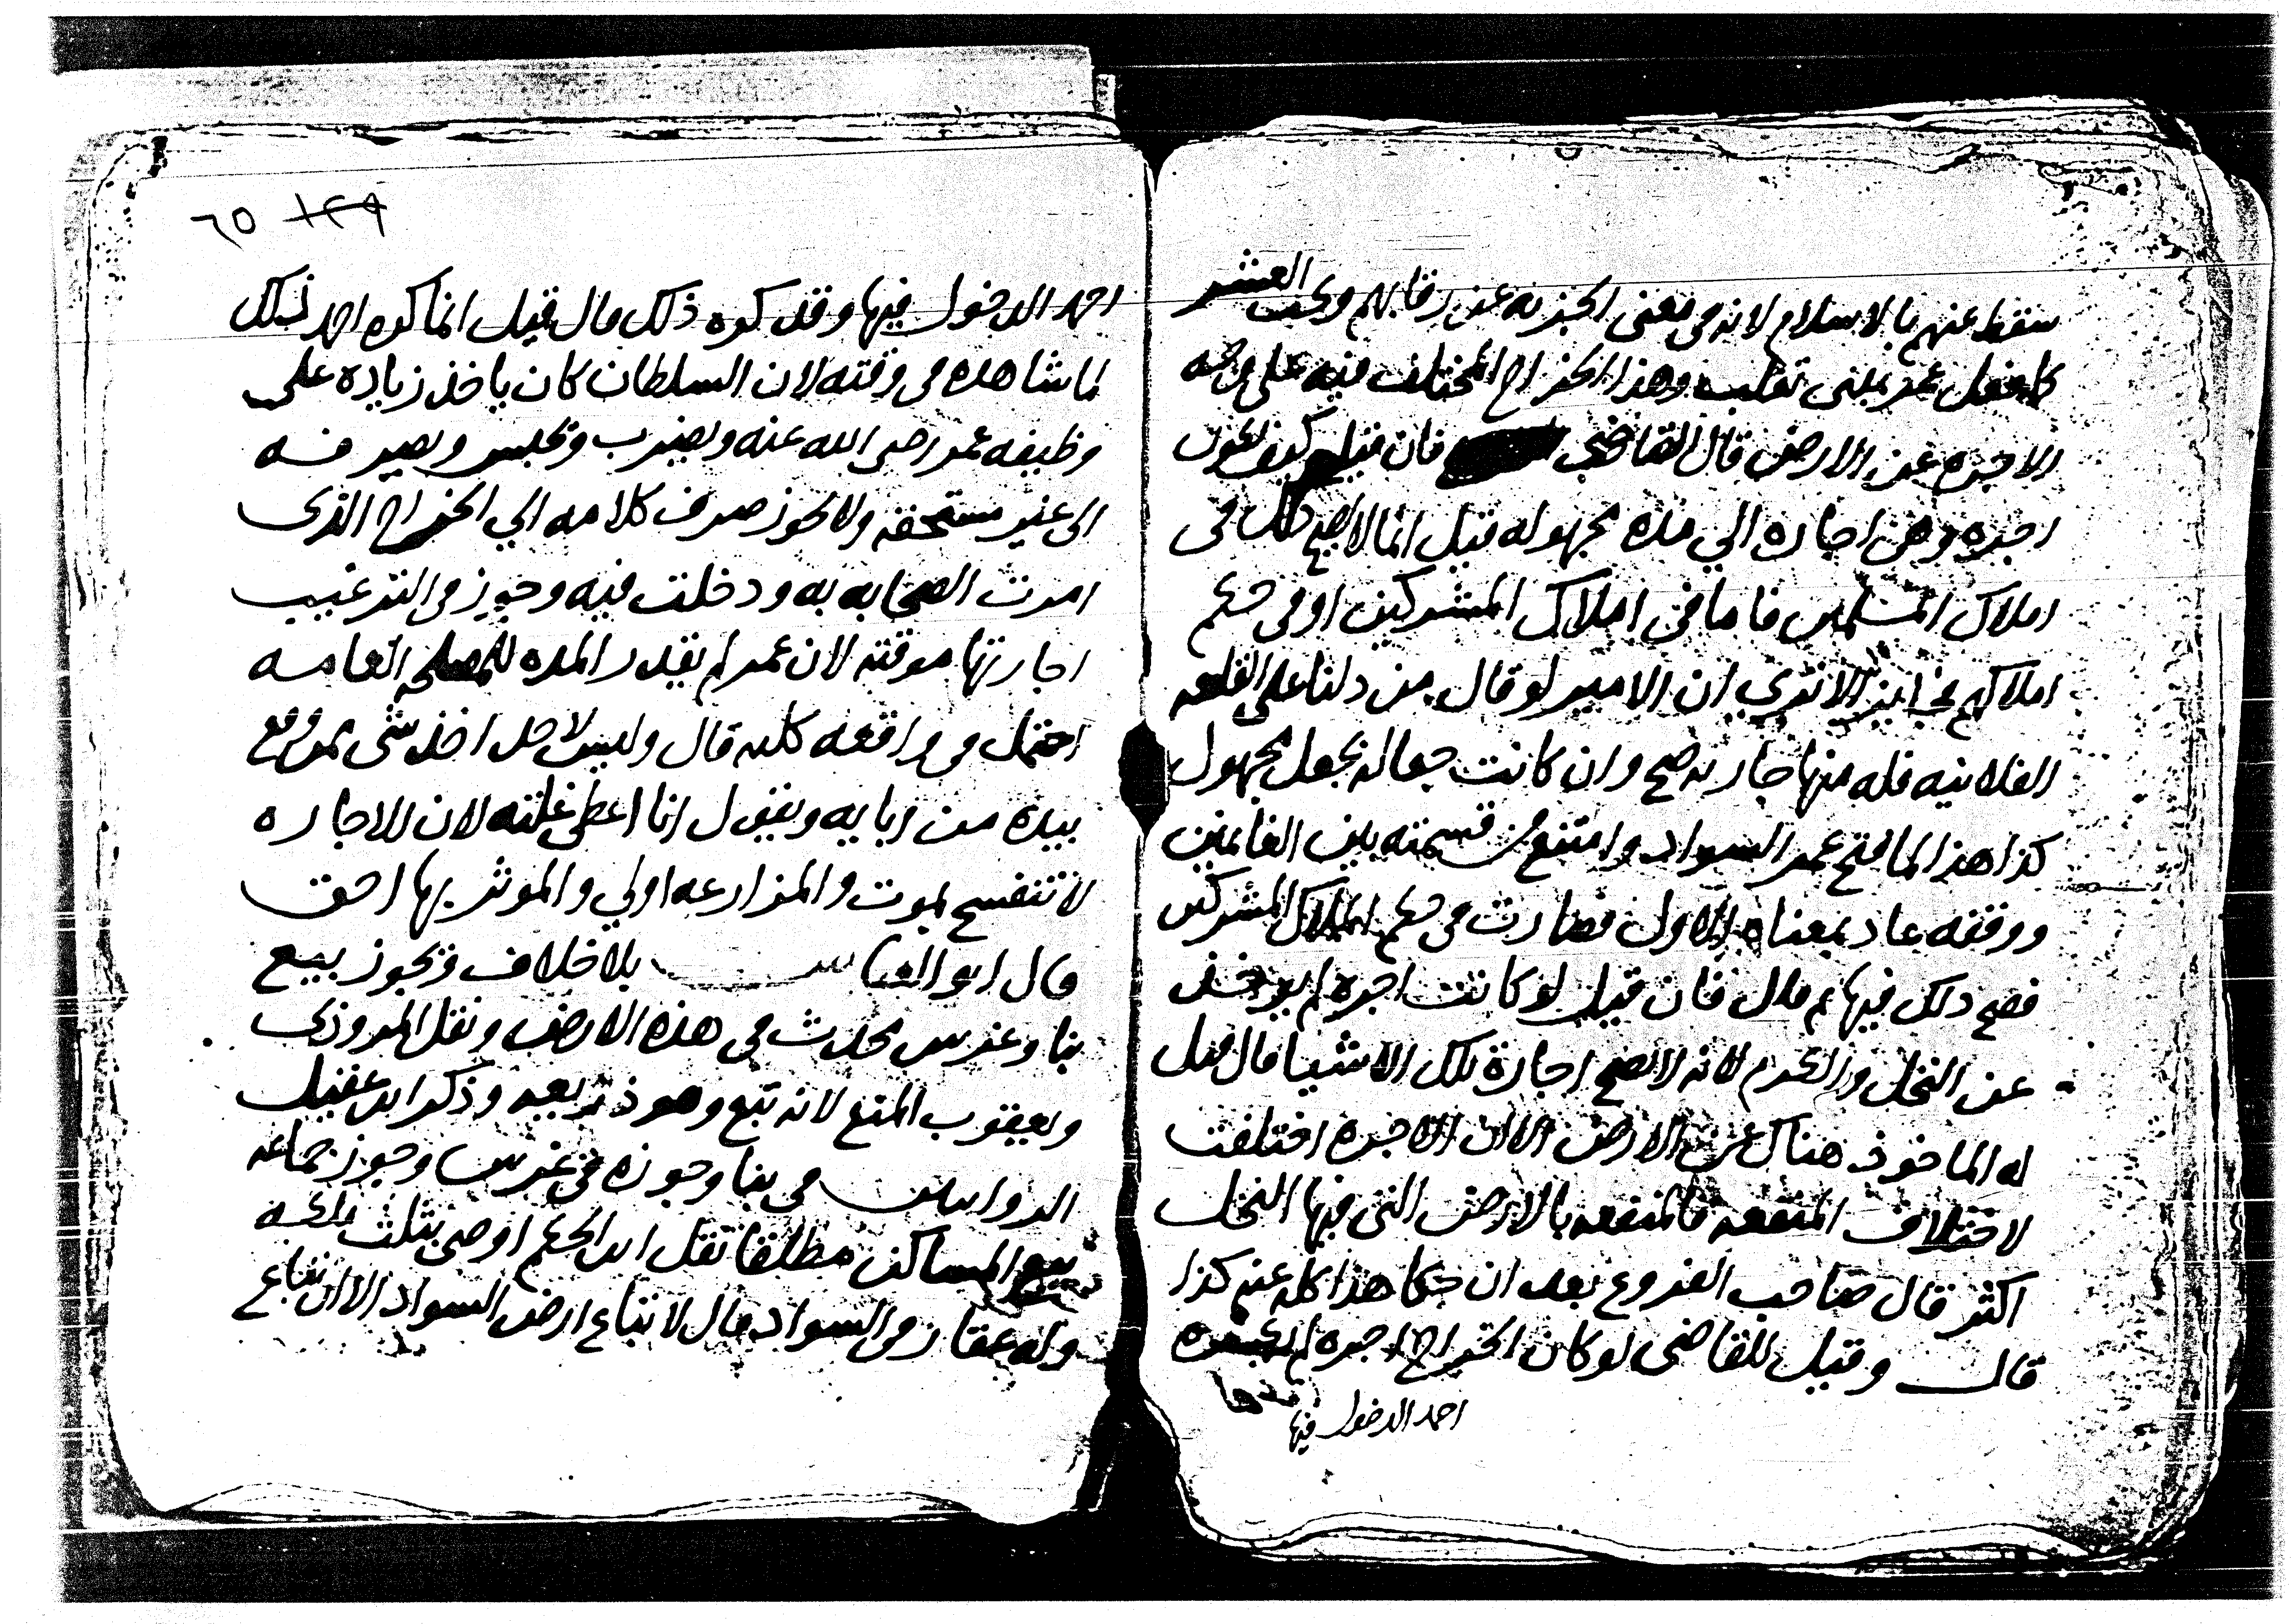 سقط عنهم بالاسلام لانه في معنى الجزيه عن رقابهم ويجب العشر
كما فعل عمر ببني تغلب وهذا الخراج المختلف فيه على وجه
الاجره عن الارض قال القاضي فان قيل كيف تكون
اجره وهي اجاره الي مده مجهوله قيل انما لا يصح ذلك في
املاك المسلمين فاما في املاك المشركين او في حكم
املاكهم فجايز الا تري ان الامير لو قال من دلنا على القلعه
الفلانيه فله منها جاريه صح وان كانت جعاله بجعل مجهول
كذا هذا لما فتح عمر السواد وامتنع من قسمته بين الغانمين
ووقفه عاد بمعناه الاول فصارت في حكم املاك المشركين
فصح ذلك فيها ثم قال فان قيل لو كانت اجره لم يوخذ
عن النخل والكرم لانه لا تصح اجارة تلك الاشيا قال قيل
له الماخوذ هناك عن الارض الا ان الاجره اختلفت
لاختلاف المنفعه فالمنفعه بالارض التي فيها النخل
اكثر قال صاحب الفروع بعد ان حكا هذا كله عنه كذا
قال وقيل للقاضي لو كان الخراج اجره لم يكره
احمد الدخول فيها
٦٥ ١٢٩
احمد الدخول فيها وقد كره ذلك قال قيل انما كره احمد ذلك
لما شاهده في وقته لان السلطان كان ياخذ زياده على
وظيفه عمر رضي الله عنه ويضرب ويحبس ويصرفه
الى غير مستحقه ولا يجوز صرف كلامه الي الخراج الذى
امرت الصحابه به ودخلت فيه وجوز في الترغيب
اجارتها موقته لان عمر لم يقدر المده للمصلحه العامه
احتمل في واقعه كليه قال وليس لاحد اخذ شي ممن وقع
بيده من ابايه ويقول انا اعطي غلته لان الاجاره
لا تنفسخ بموت والمزارعه اولي والموثر بها احق
قال ابو العباس بلا خلاف ويجوز بيع
بنا وغرس محدث في هذه الارض ونقل المروذي
ويعقوب المنع لانه تبع وهو ذريعه وذكر ابن عقيل
الروايتين في بنا وجوزه في غرس وجوز جماعه
بيع المساكن مطلقا نقل ابن الحكم اوصى بثلث ملكه
وله عقار في السواد قال لا تباع ارض السواد الا ان تباع